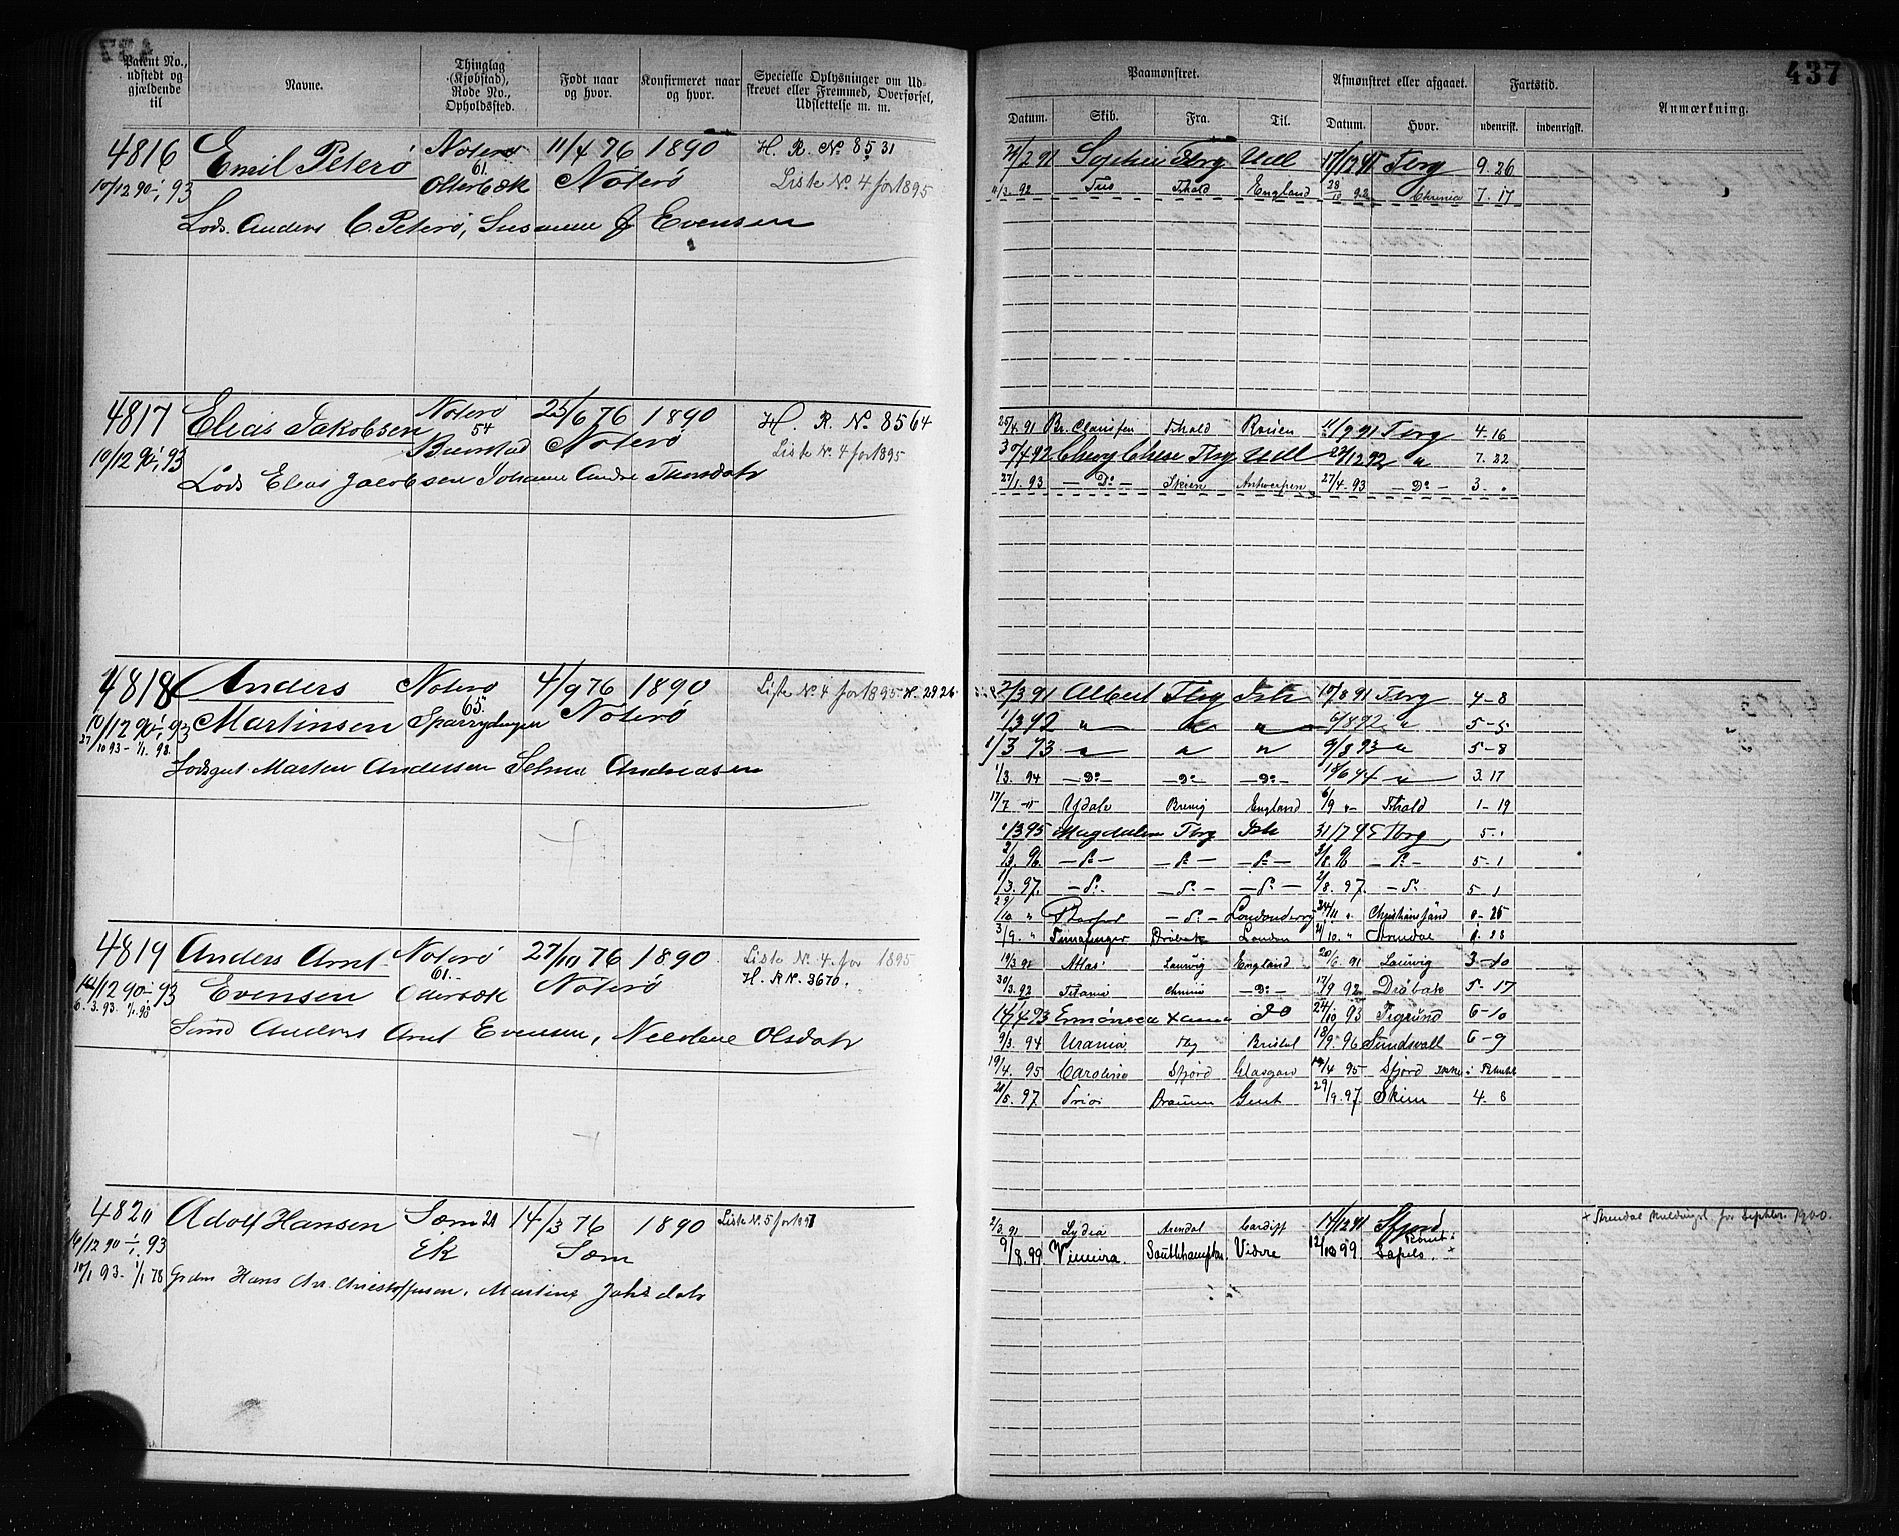 437
Patent No., udstedt og gjældende til
Navne.
Thinglag (Kjøbstad), Rode No., Opholdssted.
Født naar og hvor.
Konfirmeret naar og hvor.
Specielle Oplysninger om Udskrevet eller Fremmed, Overførsel, Udslettelse m. m.
Paamønstret.
Afmønstret eller afgaaet.
Fartstid.
Anmærkning.
Datum. Skib. Fra. Til. Datum. Hvor. udenrigsk. indenrigsk.
4816 Emil Peterø Noterø 11/4 76 1890 H. R. No 8531
61
10/12 90 1/1 93 Oterbæk Noterø Liste No. 4 for 1895
Lods. Anders C. Peterø, Susanne J Evensen
21/2 91 Sophie Tbrg Udl 17/12 91 Tbrg 9. 26
11/3. 92 Fthald England 28/10 92 Chrinia 7. 17
4817 Elias Jakobsen Noterø 25/6 76 1890 H. R. No 8564
54
10/12 90 1/1 93 Noterø Liste No. 4 for 1895
Lods Elias Jacobsen Johanne Andre
25/4. 91 Br. Claussen Fthald Rouen 11/9 91 Tbrg 4. 16
Chevy Chase Tbrg Udl 23/12 92 " 7. 22
27/1. 93 — Do — Skien Antwerpen 27/4. 93 — Do — 3. "
4818 Anders Noterø 4/9 76 1890 Liste No. 4 for 1895 No. 2926
65
10/12 90 1/1 93 Martinsen Noterø
27/10 93 - 1/1. 98.
Lodsgut Marten Andersen Selma Andreasen
2/3 91 Albert Tbrg Ish 10/8 91 Tbrg 4 - 8
1/3 92 " " " 6/8 92 " 5 - 5
1/3 93 " " " 9/8 93 " 5 - 8
1/3. 94 — Do — — Do — — Do — 18/6 94 " 3. 17
17/7 Ydale Brevig England 6/9 " Fthald 1 - 19
1/3 95 Magdalene Tbrg Ish 31/7 95 Tbrg 5. "
2/3. 96 — Do — — Do — — Do — 3/8. 96 — Do — 5 - 1
1/3. 97. — Do — — Do — — Do — 2/8. 97. — Do — 5 1
29/10 " — Do — Londonderry 24/11 " Christiansand 0 - 25
3/9. " Drøbak London 21/10. " Arendal
4819 Anders Arnt Noterø 27/10 76 1890 Liste No. 4. for 1895
61.
H. R No. 3670.
12/12 90 - 93 Evensen Oterbæk Noterø
6. 3. 93. 1/1. 98
Smd Anders Arnt Evensen, Olsdatr
19/3 91 Atlas Laurvig England 20/6. 91 Laurvig 3 - 10
30/3. 92 Titania Chrinia — Do — 17/9 92 Drøbak 5 - 17
14/4 93 Do 24/10 93 6 - 10
9/3. 94 Urania Tbg Bristol 18/9. 96 Sundsvall 6 - 9
19/4. 95 Carolina Sfjord Glasgow 19/4 95 Sfjord
21/5. 97 Trio Gent 29/9. 97. Skien 4. 8
4820 Adolf Hansen Sæm 21 14/3 76 1890 Liste No. 5 for 1897
16/12 90 1/1 93 Ek Sæm
10/1 93. 1/1 98 Grdm Hans Chr. Christoffersen. Martine
2/3. 91 Lydia Arendal Cardiff 14/12 91 Sfjord
9/8. 99 Vimeira. Southhampton Vidre 12/10 99
+ Arendal for Septbr. 1900.